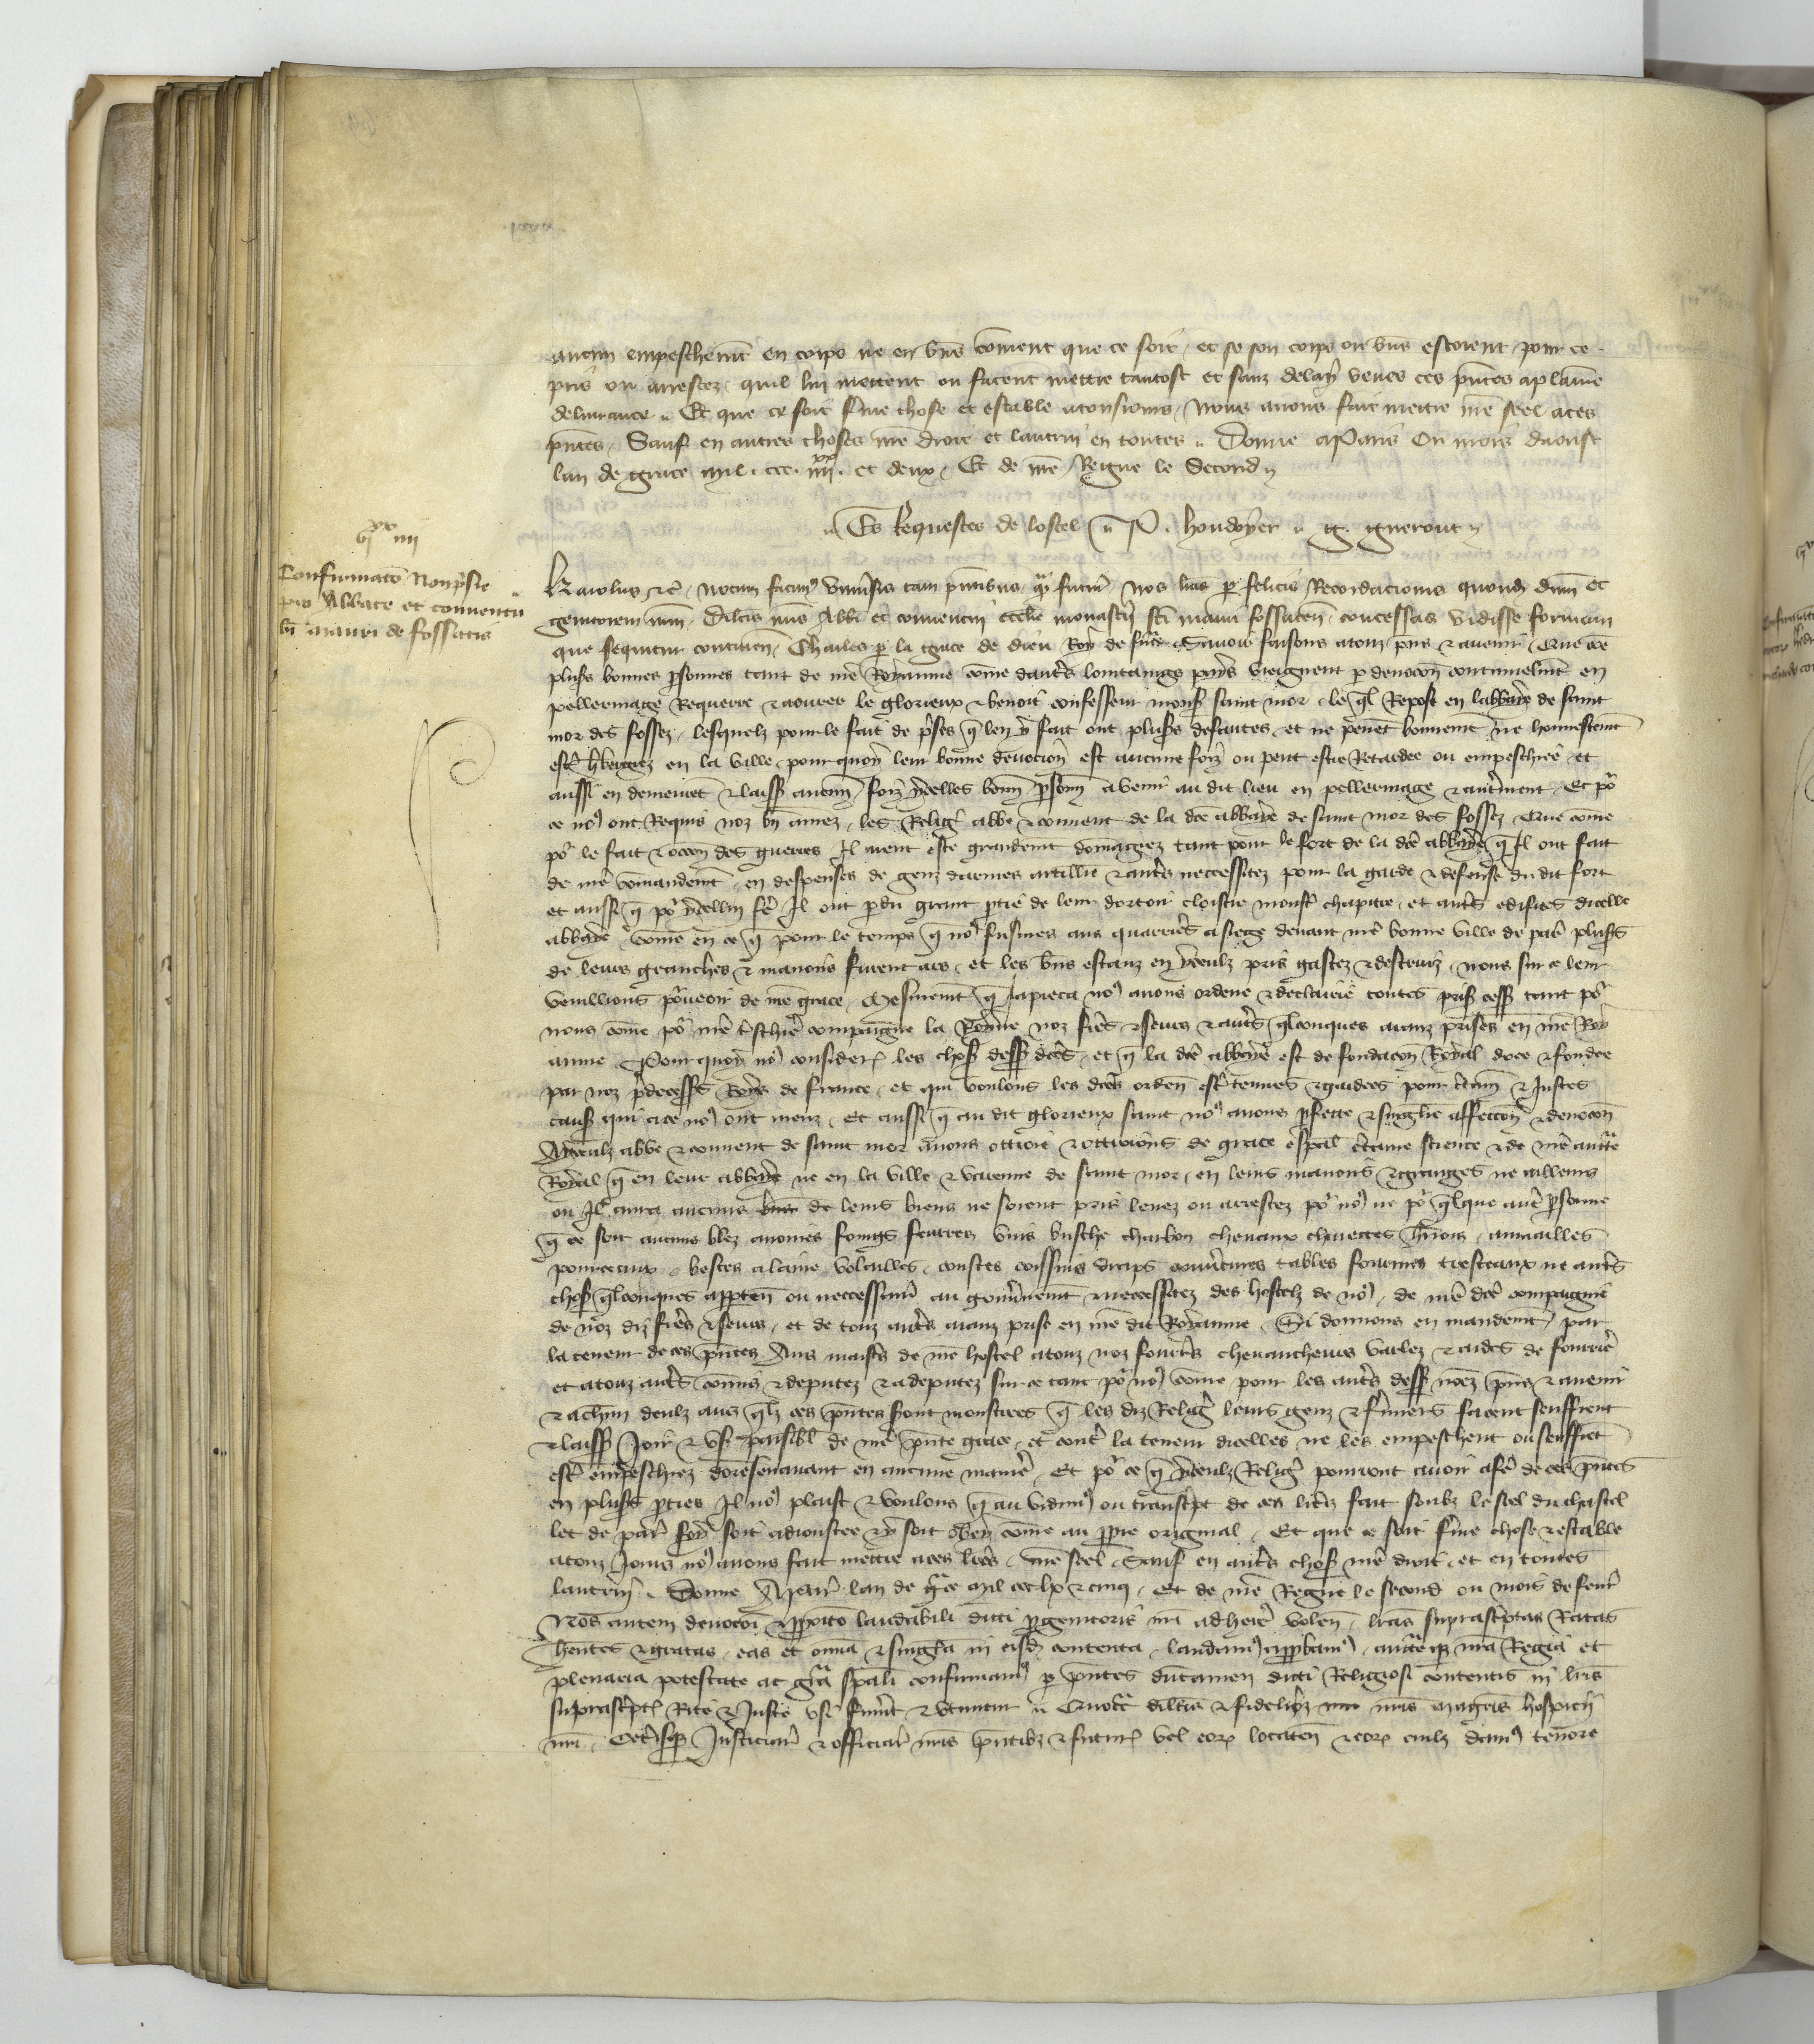 aucun empeschemt en corps ne en bns coment que ce soit. et se son corps ou bns estoient pour ce
pris ou arrestez. quil lui mettent ou facent mettre tantost et sanz delay veues ces pntes a plaine
delivrance. Et que ce soit ferme chose et estable a tousiours. Nous avons fait mettre nre seel a ces
pntes. Sauf en autres choses nre droit et lautrui en toutes. Donne a Paris Ou mois daoust
lan de grace mil. ccc. iiijxx. et deux. Et de nre Regne le Second
Es Requestes de lostel P. houdoyer G. guerout
vjxx iiij
Confirmato Non prise
pro Abbate et conventu
bi mauri de fossatis
Karolus etc. notum facimus universis tam pntibus quam futuris Nos lras per felicis Recordacionis quond dnm et
genitorem nrm. Dilcis nris Abbi et conventui ecclie monasterii sti mauri fossaten. concessas vidisse formam
que sequitur continen. Charles par la grace de dieu Roy de france. Savoir faisons a touz pns et avenir. Que come
pluss bonnes personnes tant de nre Royaume come dautres lointaings pays vieignent par devocon continuelmt en
pellerinage Requerre et aourer le glorieux et benoit confesseur mons saint mor. lequel Repose en labbaye de saint
mor des fossez. lesquelz pour le fait de prises que len y fait ont pluss deffautes. et ne pevent bonnement ne honnestemt
estre herbergiez en la ville. pour quoy leur bonne devocion est aucune foiz ou peut estre Retardee ou empeschiee. et
aussi en demeurent et laissent aucunes foiz ycelles bonnes personnes a venir au dit lieu en pellerinage et autrement. Et pour
ce nous ont Requis noz bn amez. les Religieux abbe et couvent de la dce abbaye de saint mor des fossez. Que come
pour le fait et occon des guerres Il aient este grandemt domagiez tant pour le fort de la dce abbaye que Il ont fait
de nre comandemt. en despenses de genz darmes artillerie et autres neccessitez pour la garde et defense du dit fort
et aussi que pour ycellui fere Il ont perdu grant partie de leur dortoir cloistre moustier chapitre. et autres edifices dicelle
abbaye. come en ce que pour le temps que nous fusmes aus quarrieres a siege devant nre bonne ville de paris pluss
de leurs granches et manoirs furent ars. et les bns estanz en yceulz pris gastez et destruiz. Nous sur ce leur
veuillions pourveoir de nre grace. Mesmemt que ja pieca nous avons ordene et declairie toutes prises cesser tant pour
nous come pour nre treschiere compaigne la Royne noz freres et seurs et autres quelconques aianz prises en nre Roy
aume. Pour quoy nous considerans les choses dessus dictes. et que la dce abbaye est de fondacon Royal doee et fondee
par noz predecesseurs Roys de france. et qui voulons les dces ordennances estre tenues et gardees pour certaines et Justes
causes qui a ce nous ont meuz. Et aussi que au dit glorieux saint nous avons parfecte et singliere affeccon et devocon
A yceulz abbe et couvent de saint mor avons ottroie et ottroions de grace espal certaine science et de nre auctorite
Royal que en leur abbaye ne en la ville et varenne de saint mor. en leurs manoirs et granges ne ailleurs
ou Il aura aucuns bns de leurs biens ne soient pris levez ou arrestez pour nous ne pour quelque autre personne
que ce soit aucuns blez avoines foings feurres vins busche charbon chevaux charrettes harnois aumailles
pourceaux. bestes a laine volailles. coustes coissins draps couvertures tables fourmes tresteaux ne autres
choses quelconques appartens ou neccessaires au gouvernemt et neccessitez des hostelz de nous. de nre dce compaigne
de noz diz freres et seurs. et de touz autres aianz prise en nre dit Royaume. Si donnons en mandemt par
la teneur de ces pntes Aus maistres de nre hostel a touz noz fourriers chevaucheurs varlez et aides de fourriere
et a touz autres commis et deputez et a deputer sur ce tant pour nous come pour les autres dessus nomez pns et avenir
et a chacun deulz aus quelz ces pntes seront monstrees que les diz Religieux leurs genz et fermiers facent seuffrent
et laissent Joir et user paisiblement de nre pnte grace. et contre la teneur dicelles ne les empeschent ou seuffrent
estre empeschiez doresenavant en aucune maniere. Et pour ce que yceulz Religieux pourront avoir afere de ces pntes
en pluss parties Il nous plaist et voulons que au vidimus ou transcript de ces lettres fait soubz le seel du chastel
let de paris foy soit adioustee et y soit obey come au propre original. Et que ce soit ferme chose et estable
a touz Jours nous avons fait mettre a ces lres. nre seel. Sauf en autres choses nre droit. et en toutes
lautrui. Donne A paris lan de grace mil ccc lx et cinq. Et de nre Regne le second ou mois de fevrier
Nos autem devocoi et proposito laudabili dicti progenitoris nri adherere volen. lras suprascriptas Ratas
hentes et gratas. eas et omia et singla in eisd contenta. laudamus approbamus. auctoriteque nra Regia et
plenaria potestate ac gra spali confirmamus per pntes dumtamen dicti Religiosi contentis in lris
suprascriptis Rite et Juste usi fuerint et utantur. Quocirca dilcis et fidelibus nris magris hospicii
nri. Ceterisque Justiciariis et officiariis nris pntibus et futuris vel eorum locaten et eorum cuilibet damus tenore